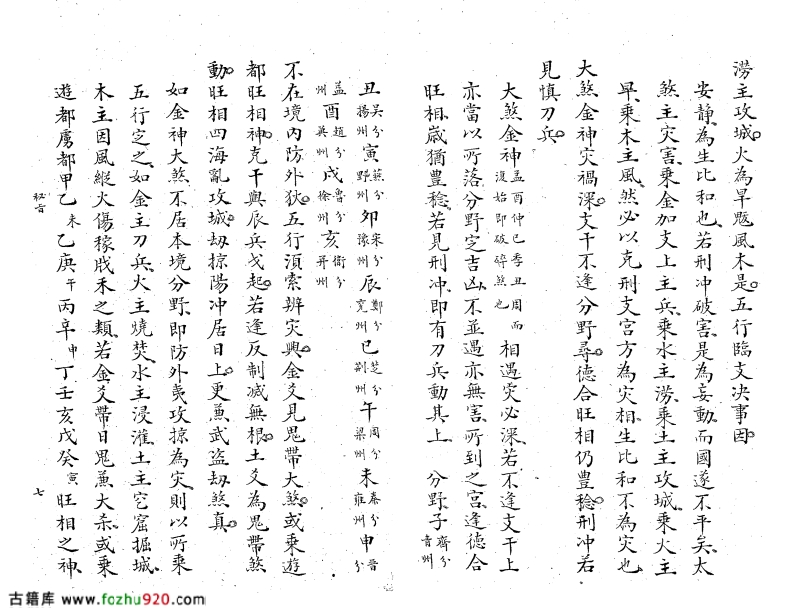 澇主攻城火為旱殃風木是五行臨支決事因
安靜為生比和也若刑冲破害是為妄動而國遂不平矣太
煞主灾害乘金加支上主兵乘水主澇乘土主攻城乘火主
旱乘木主風然必以克刑支宮方為灾相生比和不為灾也
大煞金神灾禍深支干不逢分野尋德合旺相仍豊稔刑冲右
見慎刀兵
大煞金神孟酉仲巳季丑周而復始即破碎煞也相遇灾必深若不逢支干上
亦當以所落分野定吉凶不並遇亦無害所到之宮逢德合
旺相歲猶豊稔若見刑冲即有刀兵動其上 分野子齊分青州
丑吳分楊州寅燕分野州卯宋分豫州辰鄭分兗州巳楚分荆州午周分梁州未秦分雍州申晋分
益州酉趙分冀州戌魯分徐州亥衛分并州
不在境內防外狄五行湏索辨灾興金爻見鬼帶大煞或乘遊
都旺相神克干與辰兵戈起若逢反制減無根土爻為鬼帶煞
動旺相四海亂攻城劫掠陽冲居日上更兼武盗劫煞真
如金神大煞不居本境分野即防外夷攻掠為灾則以所乘
五行定之如金主刀兵火主燒焚水主浸灌土主穵窟掘城
木主因風縱火傷稼戕禾之類若金爻帶日鬼兼大煞或乘
遊都虜都甲乙未乙庚午丙辛申丁壬亥戊癸寅旺相之神
秘旨
七
古籍库 www.fozhu920.com